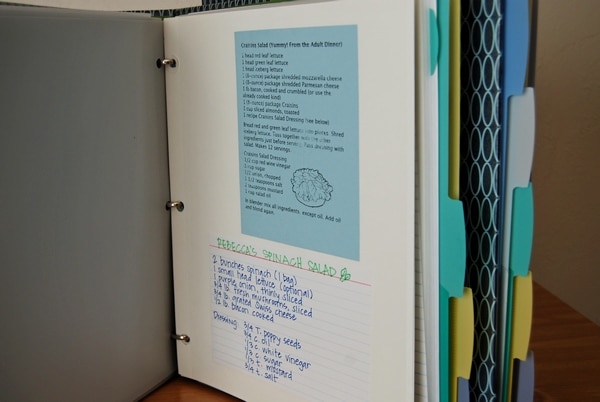 Craisins Salad (Yummy! From the Adult Dinner)
1 head red leaf lettuce
1 head green leaf lettuce
1 head iceberg lettuce
1 (8-ounce) package shredded mozzarella cheese
1 (6-ounce) package shredded Parmesan cheese
1 lb bacon, cooked and crumbled (or use the
already cooked kind)
1 (6-ounce) package Craisins
cup sliced almonds, roasted
1 recipe Craisins Salad Dressing (see below)
Bread red and green leaf lettuce into pieces. Shred
iceberg lettuce. Toss together with the other
ingredients just before serving. Toss dressing with
salad. Makes 12 servings.
Craisins Salad Dressing
1/2 cup red wine vinegar
cup sugar
onion, chopped
1 1/2 teaspoons salt
teaspoons mustard
1 cup salad oil
In blender mix all ingredients, except oil. Add oil
and blend again.
REBECCA'S SPINACH SALAD
2 bunches spinach (1 bag)
1 small head lettuce (optional)
1 purple onion, thinly sliced
3/4 lb. fresh mushrooms, sliced
3/4 lb. grated Swiss cheese
1/2 lb. bacon cooked
Dressing: 3/4 T. poppy seeds
3/4 c. oil
1/3 c. white vinegar
1/3 c. sugar
1/3 t. mustard
3/4 t. salt